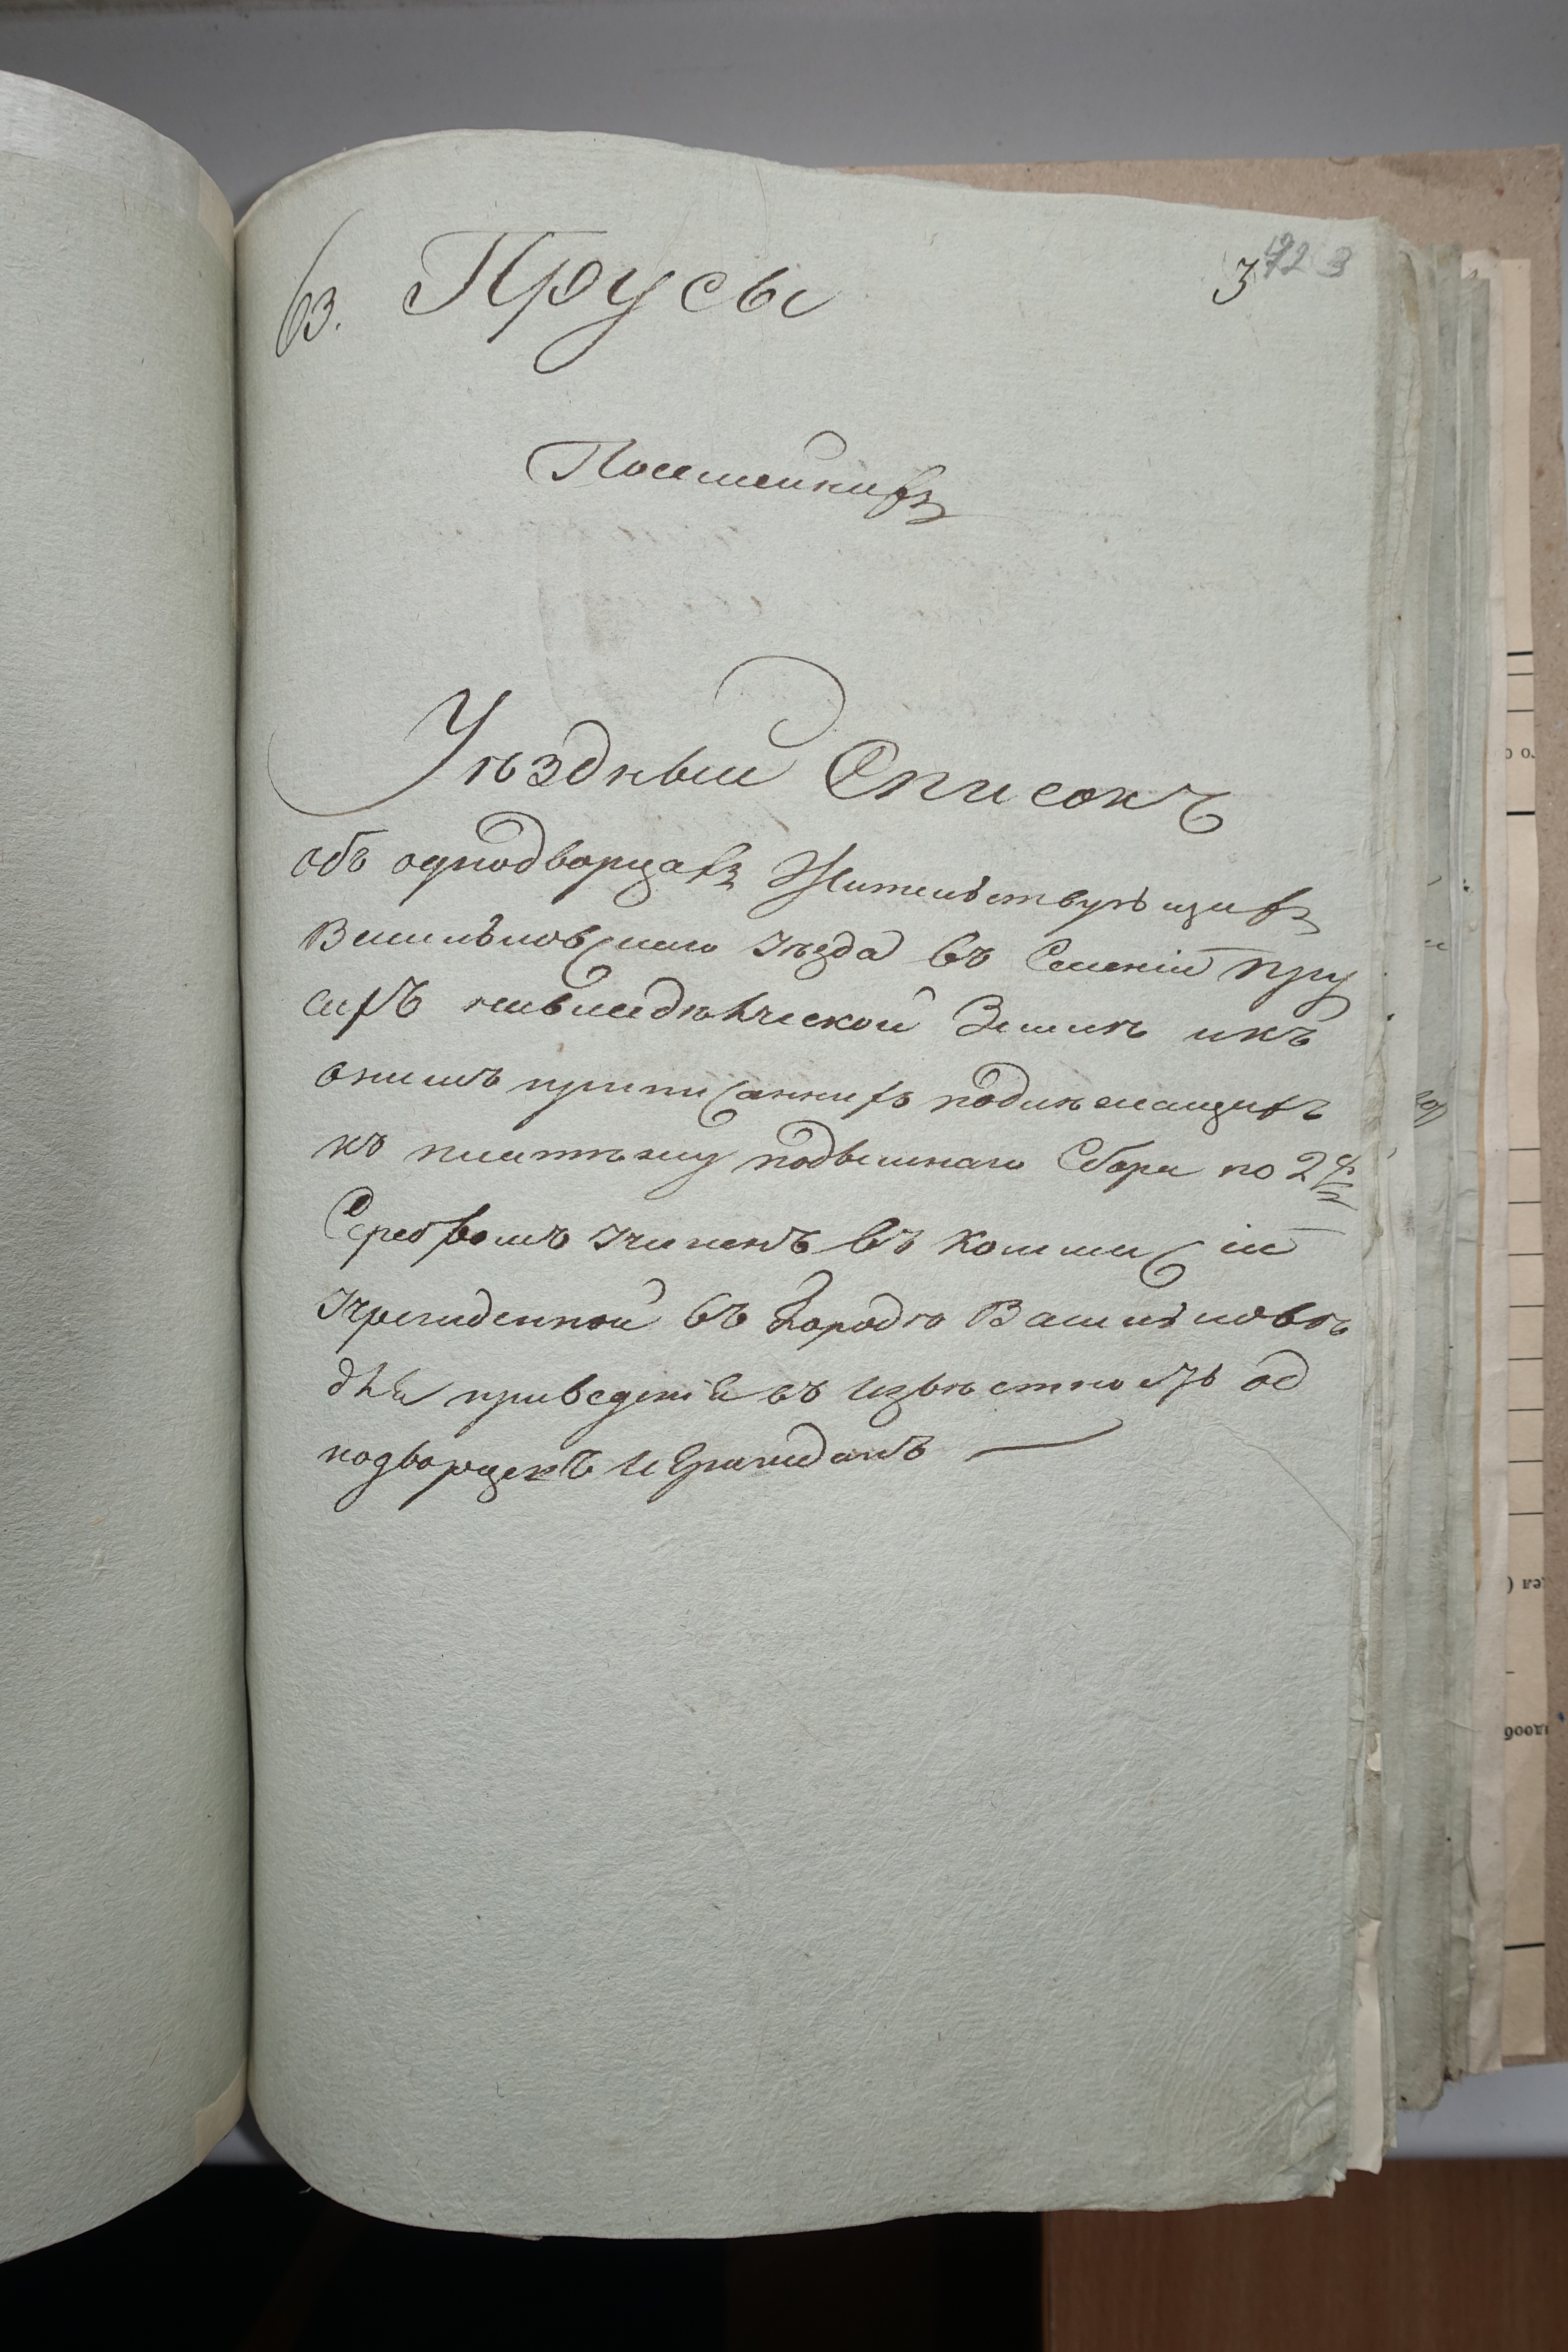 63. Прусы
3
Посемейнихъ
Уѣздный Списокъ
объ однодворцахъ Жительствующихъ
Васильковскаго уѣзда въ Селеніи Пру
сахъ на владѣльческой Землѣ и къ
онымъ приписанныхъ подлежащихъ
къ платежу подымнаго Сбора по 2 р
Серебромъ учиненъ въ Коммисіи
учрежденной въ Городѣ Васильковѣ
для приведенія въ извѣстность од
нодворцевъ и Гражданъ